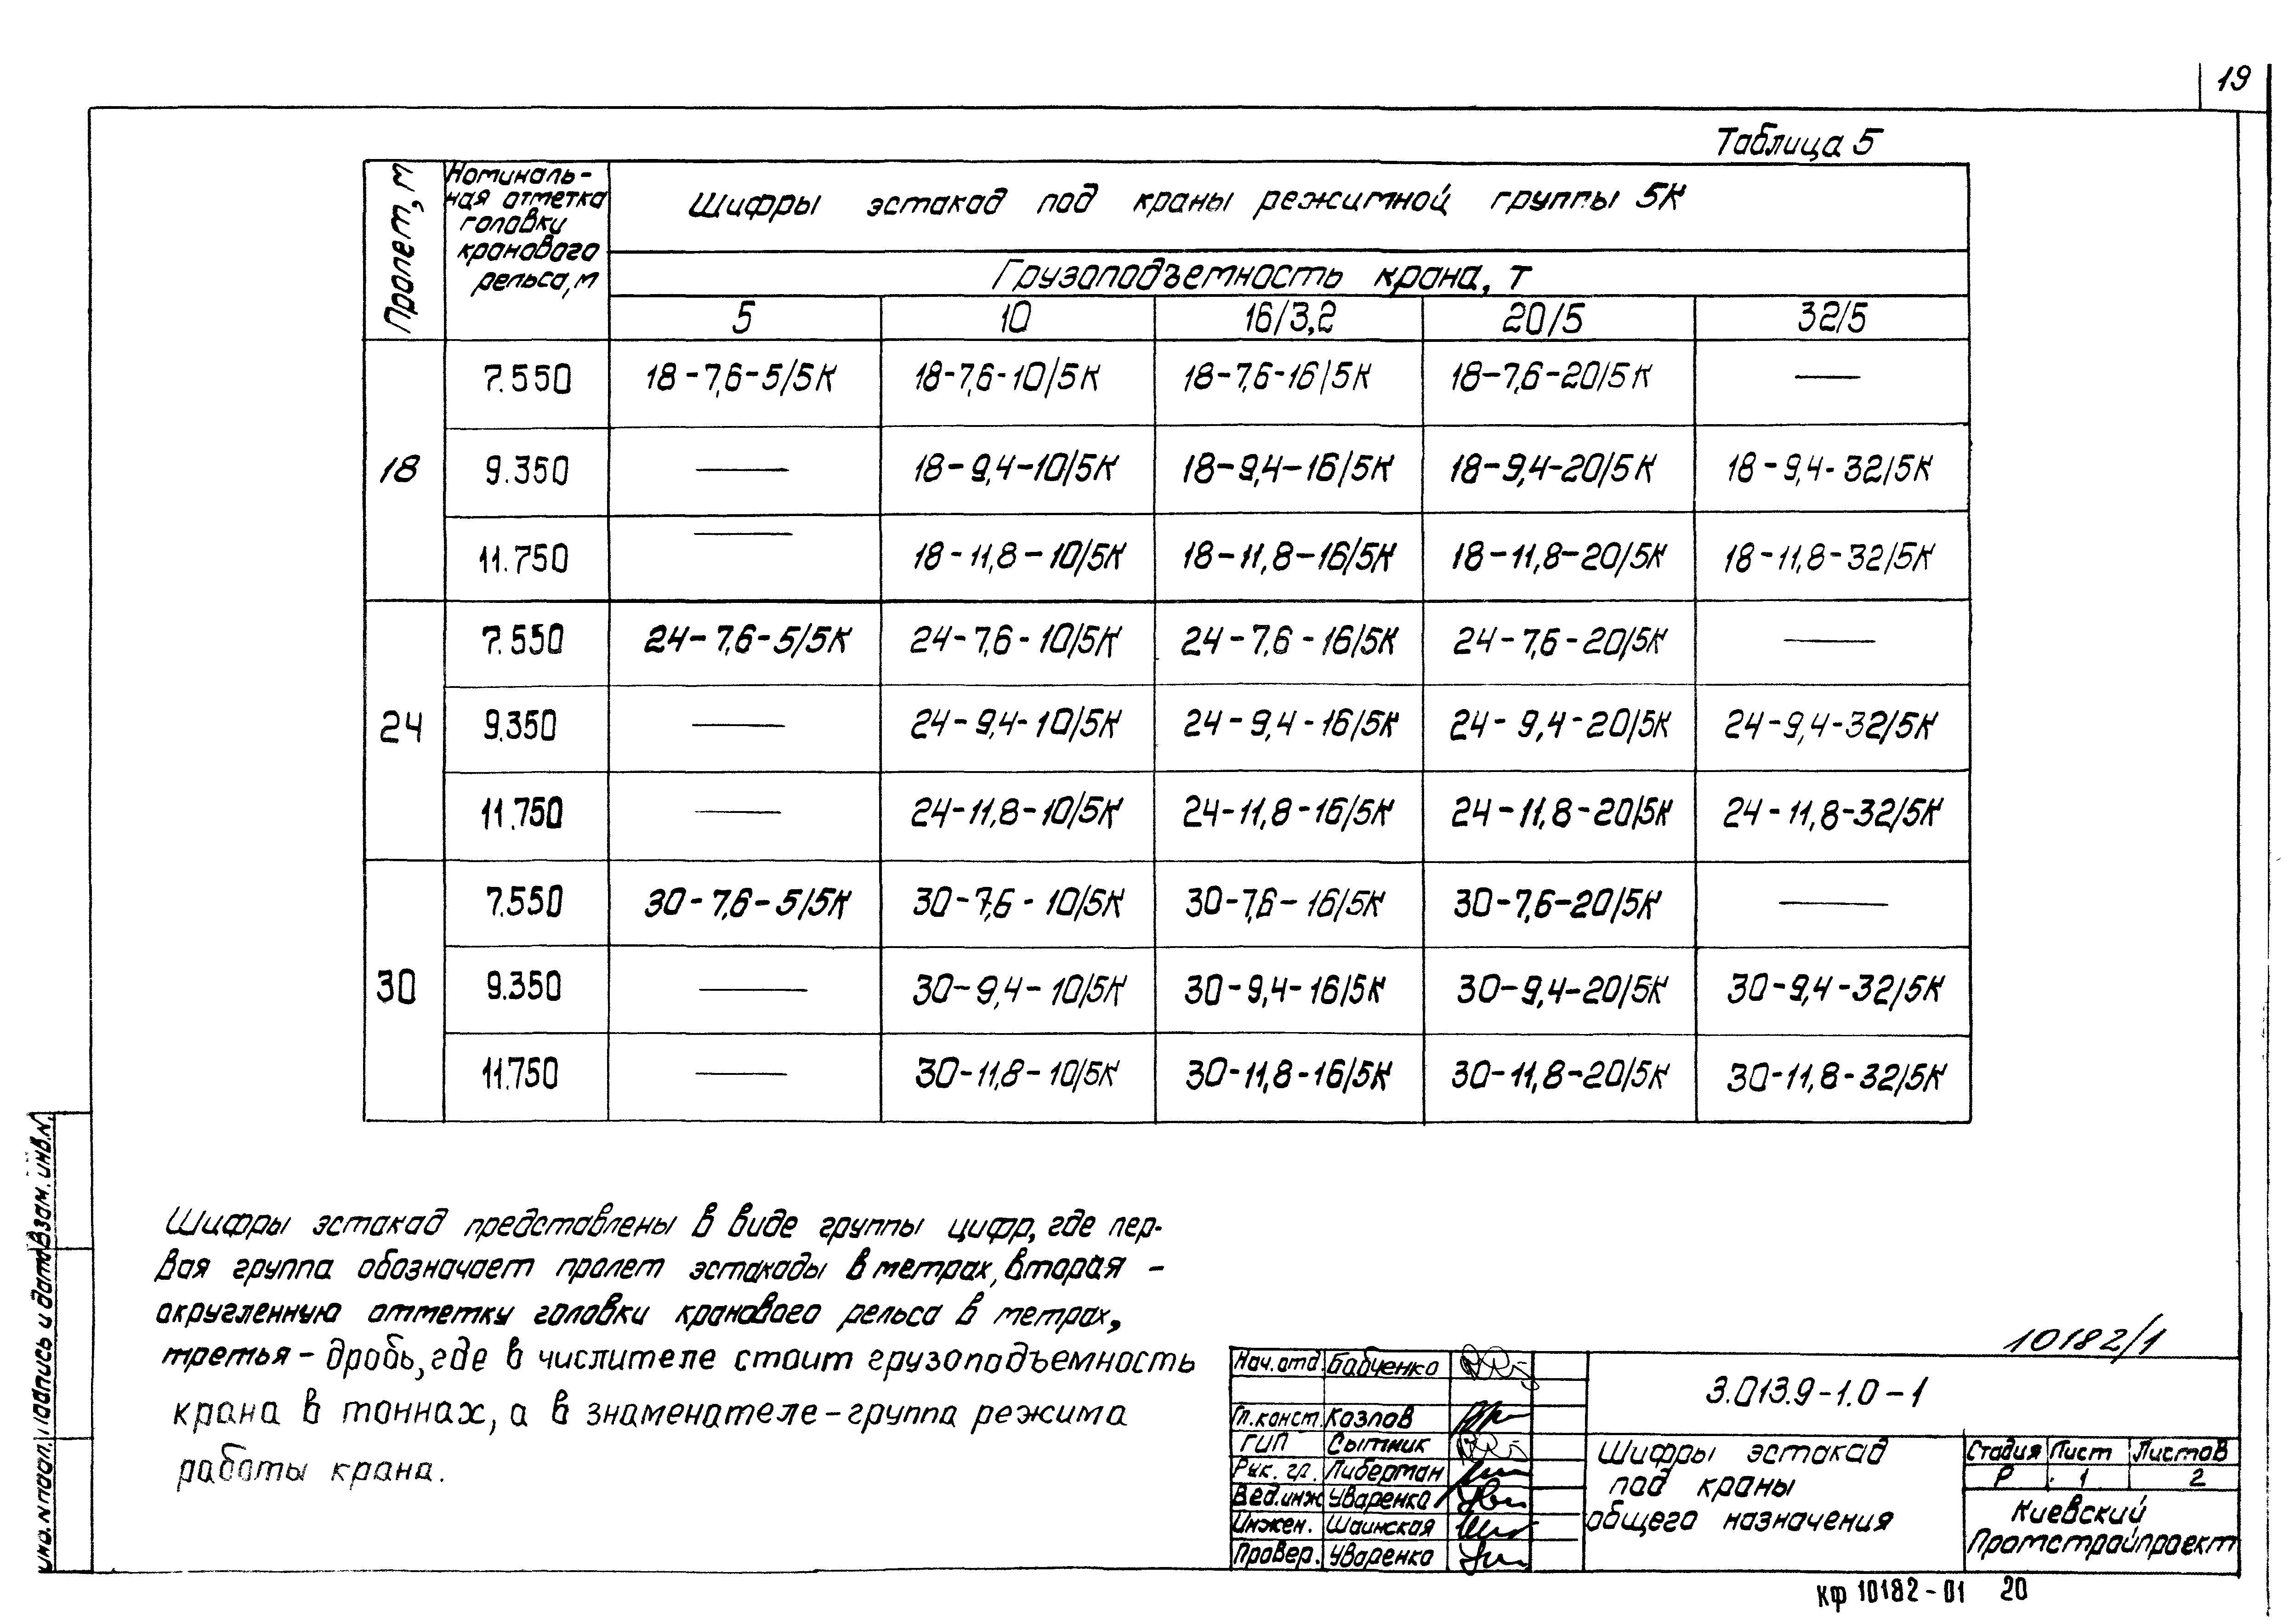 19
Таблица 5
Пролет, м
Номиналь-
ная отметка
головки
кранового
рельса, м
Шифры эстакад под краны режимной группы 5К
Грузоподъемность крана, т
5 10 16/3,2 20/5 32/5
18
7.550 18-7,6-5/5К 18-7,6-10/5К 18-7,6-16/5К 18-7,6-20/5К —
9.350 — 18-9,4-10/5К 18-9,4-16/5К 18-9,4-20/5К 18-9,4-32/5К
11.750 — 18-11,8-10/5К 18-11,8-16/5К 18-11,8-20/5К 18-11,8-32/5К
24
7.550 24-7,6-5/5К 24-7,6-10/5К 24-7,6-16/5К 24-7,6-20/5К —
9.350 — 24-9,4-10/5К 24-9,4-16/5К 24-9,4-20/5К 24-9,4-32/5К
11.750 — 24-11,8-10/5К 24-11,8-16/5К 24-11,8-20/5К 24-11,8-32/5К
30
7.550 30-7,6-5/5К 30-7,6-10/5К 30-7,6-16/5К 30-7,6-20/5К —
9.350 — 30-9,4-10/5К 30-9,4-16/5К 30-9,4-20/5К 30-9,4-32/5К
11.750 — 30-11,8-10/5К 30-11,8-16/5К 30-11,8-20/5К 30-11,8-32/5К
Шифры эстакад представлены в виде группы цифр, где пер-
вая группа обозначает пролет эстакады в метрах, вторая -
округленную отметку головки кранового рельса в метрах,
третья - дробь, где в числителе стоит грузоподъемность
крана в тоннах, а в знаменателе - группа режима
работы кранa.
Инв. N подл. Подпись и дата Взам. инв. N
10182/1
Нач. отд. Бабченко
Гл. конст. Козлов
ГИП Сытник
Рук. гр. Либерман
Вед. инж Уваренко
Инжен. Шаинская
Провер. Уваренко
3.013.9-1.0-1
Шифры эстакад
под краны
общего назначения
Стадия Лист Листов
Р 1 2
Киевский
Промстройпроект
КФ 10182-01 20